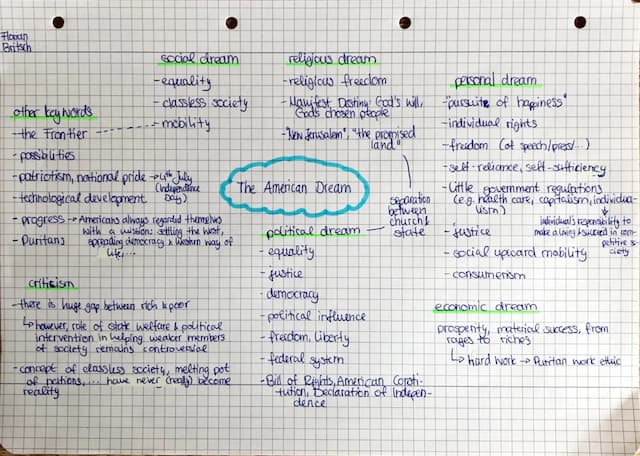 Florian
Britsch
social dream
- equality
- classless society
- mobility
religious dream
- religious freedom
- Manifest Destiny: God's will,
God's chosen people
- "New Jerusalem", "the promised
land"
separation
between
church &
state
personal dream
- "pursuite of happiness"
- individual rights
- freedom (of speech/press/...)
- self-reliance, self-sufficiency
- Little government regulations
(e.g. health care, capitalism, individua-
lism)
individual's responsibility to
make a living & succeed in com-
petitive society
- justice
- social upward mobility
- consumerism
other keywords
- the Frontier
- possibilities
- patriotism, national pride → 4th July
(Independence
Day)
- technological development
- progress → Americans always regarded themselves
with a mission: settling the West,
spreading democracy & Western way of
life,...
- Puritans
The American Dream
political dream
- equality
- justice
- democracy
- political influence
- freedom, liberty
- federal system
- Bill of Rights, American
Declaration of Indepen-
dence
criticism
- there is huge gap between rich & poor
↳ however, role of state welfare & political
intervention in helping weaker members
of society remains controversial
- concept of classless society, melting pot
of nations,... have never (really) become
reality
economic dream
prosperity, material success, from
rages to riches
↳ hard work → Puritan work ethic